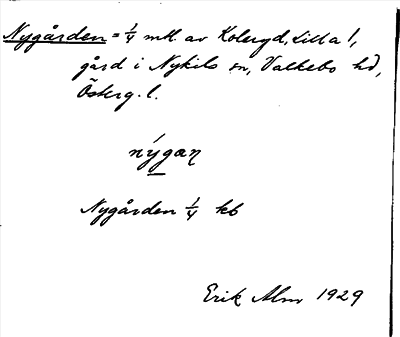 Nygården = 1/4 mtl. av Koleryd, Lilla 1,
gård i Nykils sn, Valkebo hd,
Österg. l.
nýgan
Nygården 1/4 kb
Erik Alm 1929